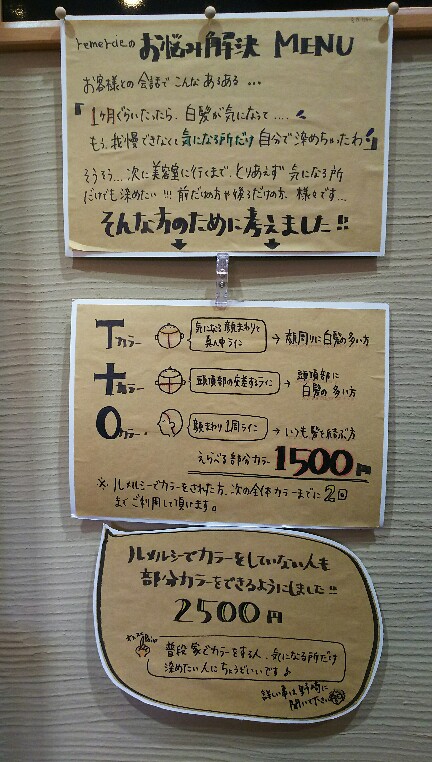 remercieの お悩み解決 MENU
お客様との会話でこんなあるある…
『1ヶ月ぐらいたったら、白髪が気になって....
もう、我慢できなくて気になる所だけ自分で染めちゃったわ』
そうそう…次に美容室に行くまで、とりあえず 気になる所
だけでも染めたい!!! 前だけの方や後ろだけの方、様々です…
そんな方のために考えました!!
Tカラー 気になる顔まわりと真ん中ライン → 顔周りに白髪の多い方
十カラー 頭頂部の交差するライン → 頭頂部に白髪の多い方
Oカラー 顔まわり1周ライン → いつも髪を結ぶ方
えらべる部分カラー 1500円
※ルメルシーでカラーをされた方、次の全体カラーまでに2回
までご利用して頂けます。
ルメルシーでカラーをしていない人も
部分カラーをできるようにしました!!
2500円
普段家でカラーをする人、気になる所だけ
染めたい人にちょうどいいです♪
詳しい事は野崎に
聞いて下さい